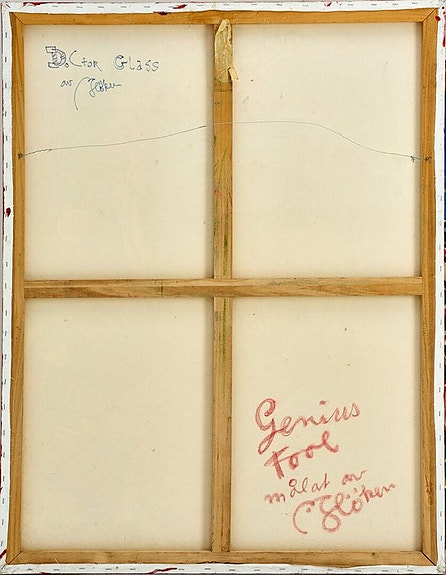 Doctor Glass
av CJ Höken
Genius
Fool
målat av
CJ Höken